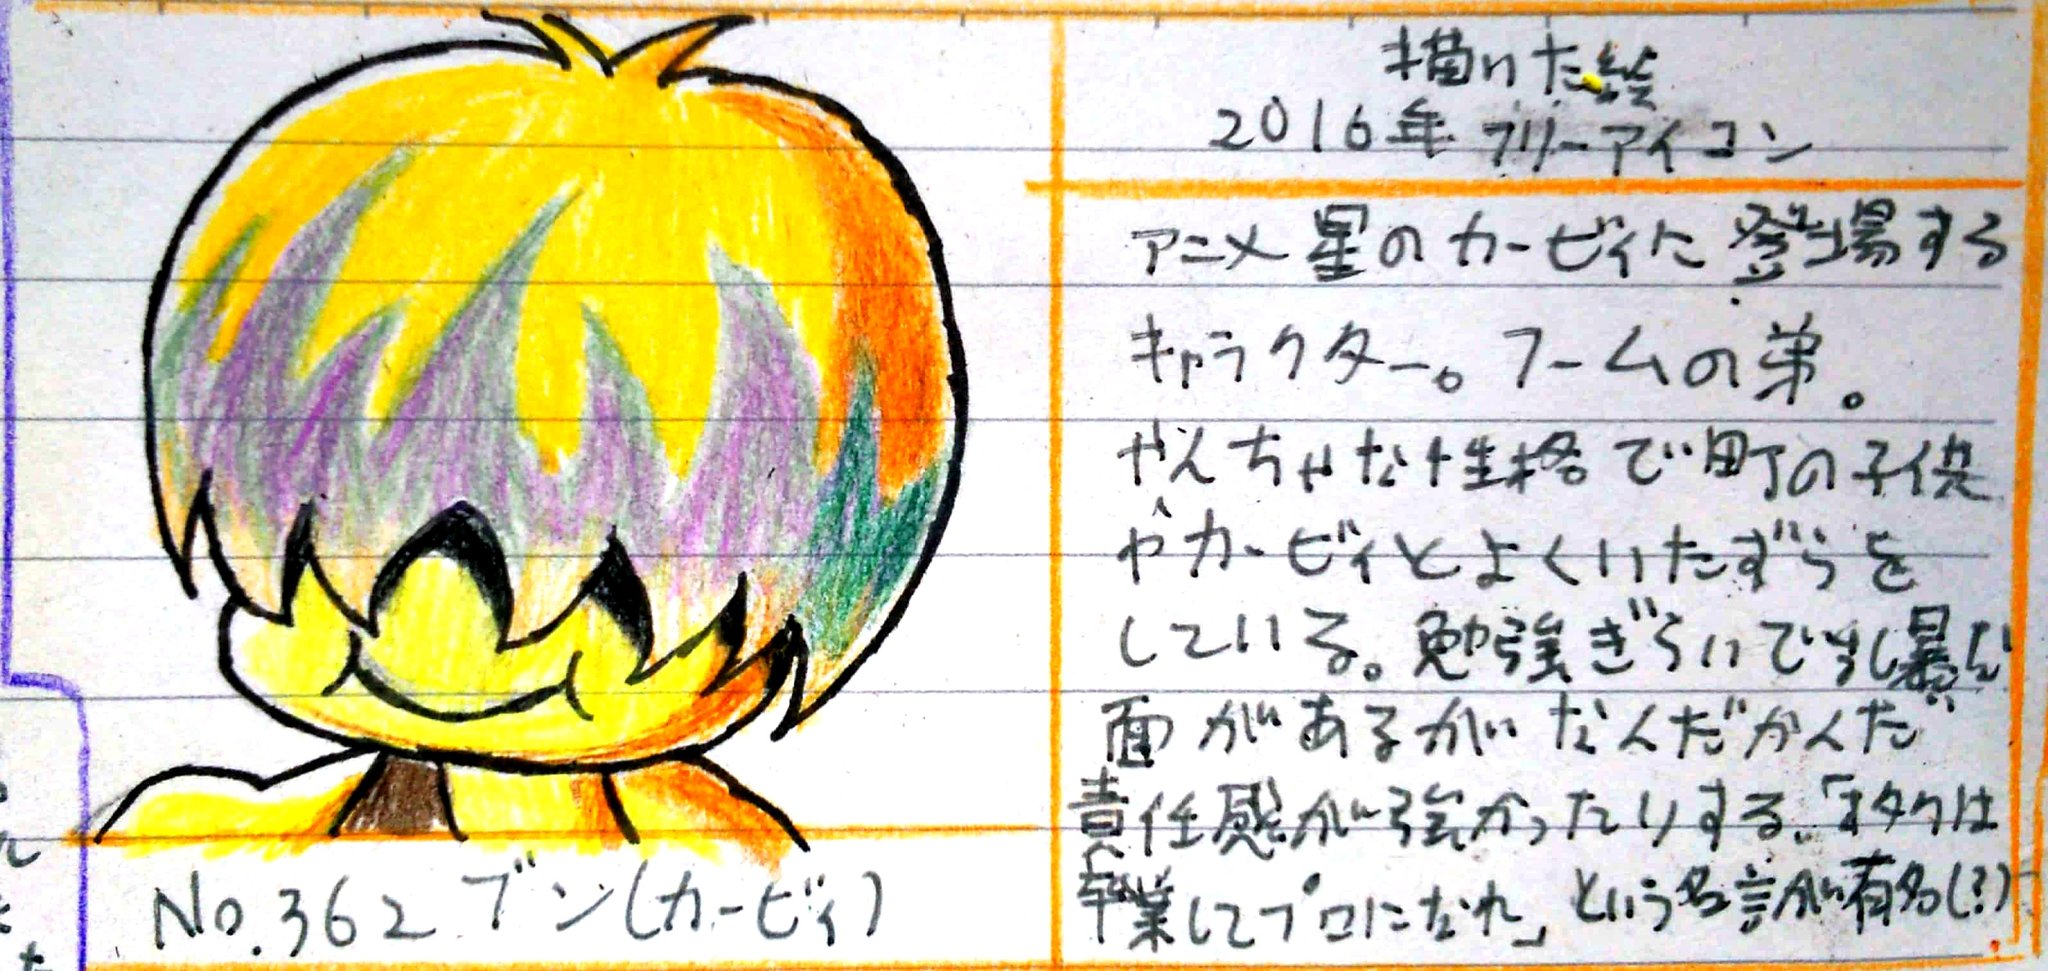 No.362 ブン(カービィ)
描いた絵
2016年 フリーアイコン
アニメ星のカービィに登場する
キャラクター。フームの弟。
やんちゃな性格で町の子供
やカービィとよくいたずらを
している。勉強ぎらいで乱暴な
面があるがなんだかんだ
責任感が強かったりする。「オタクは
卒業してプロになれ」という名言が有名(?)